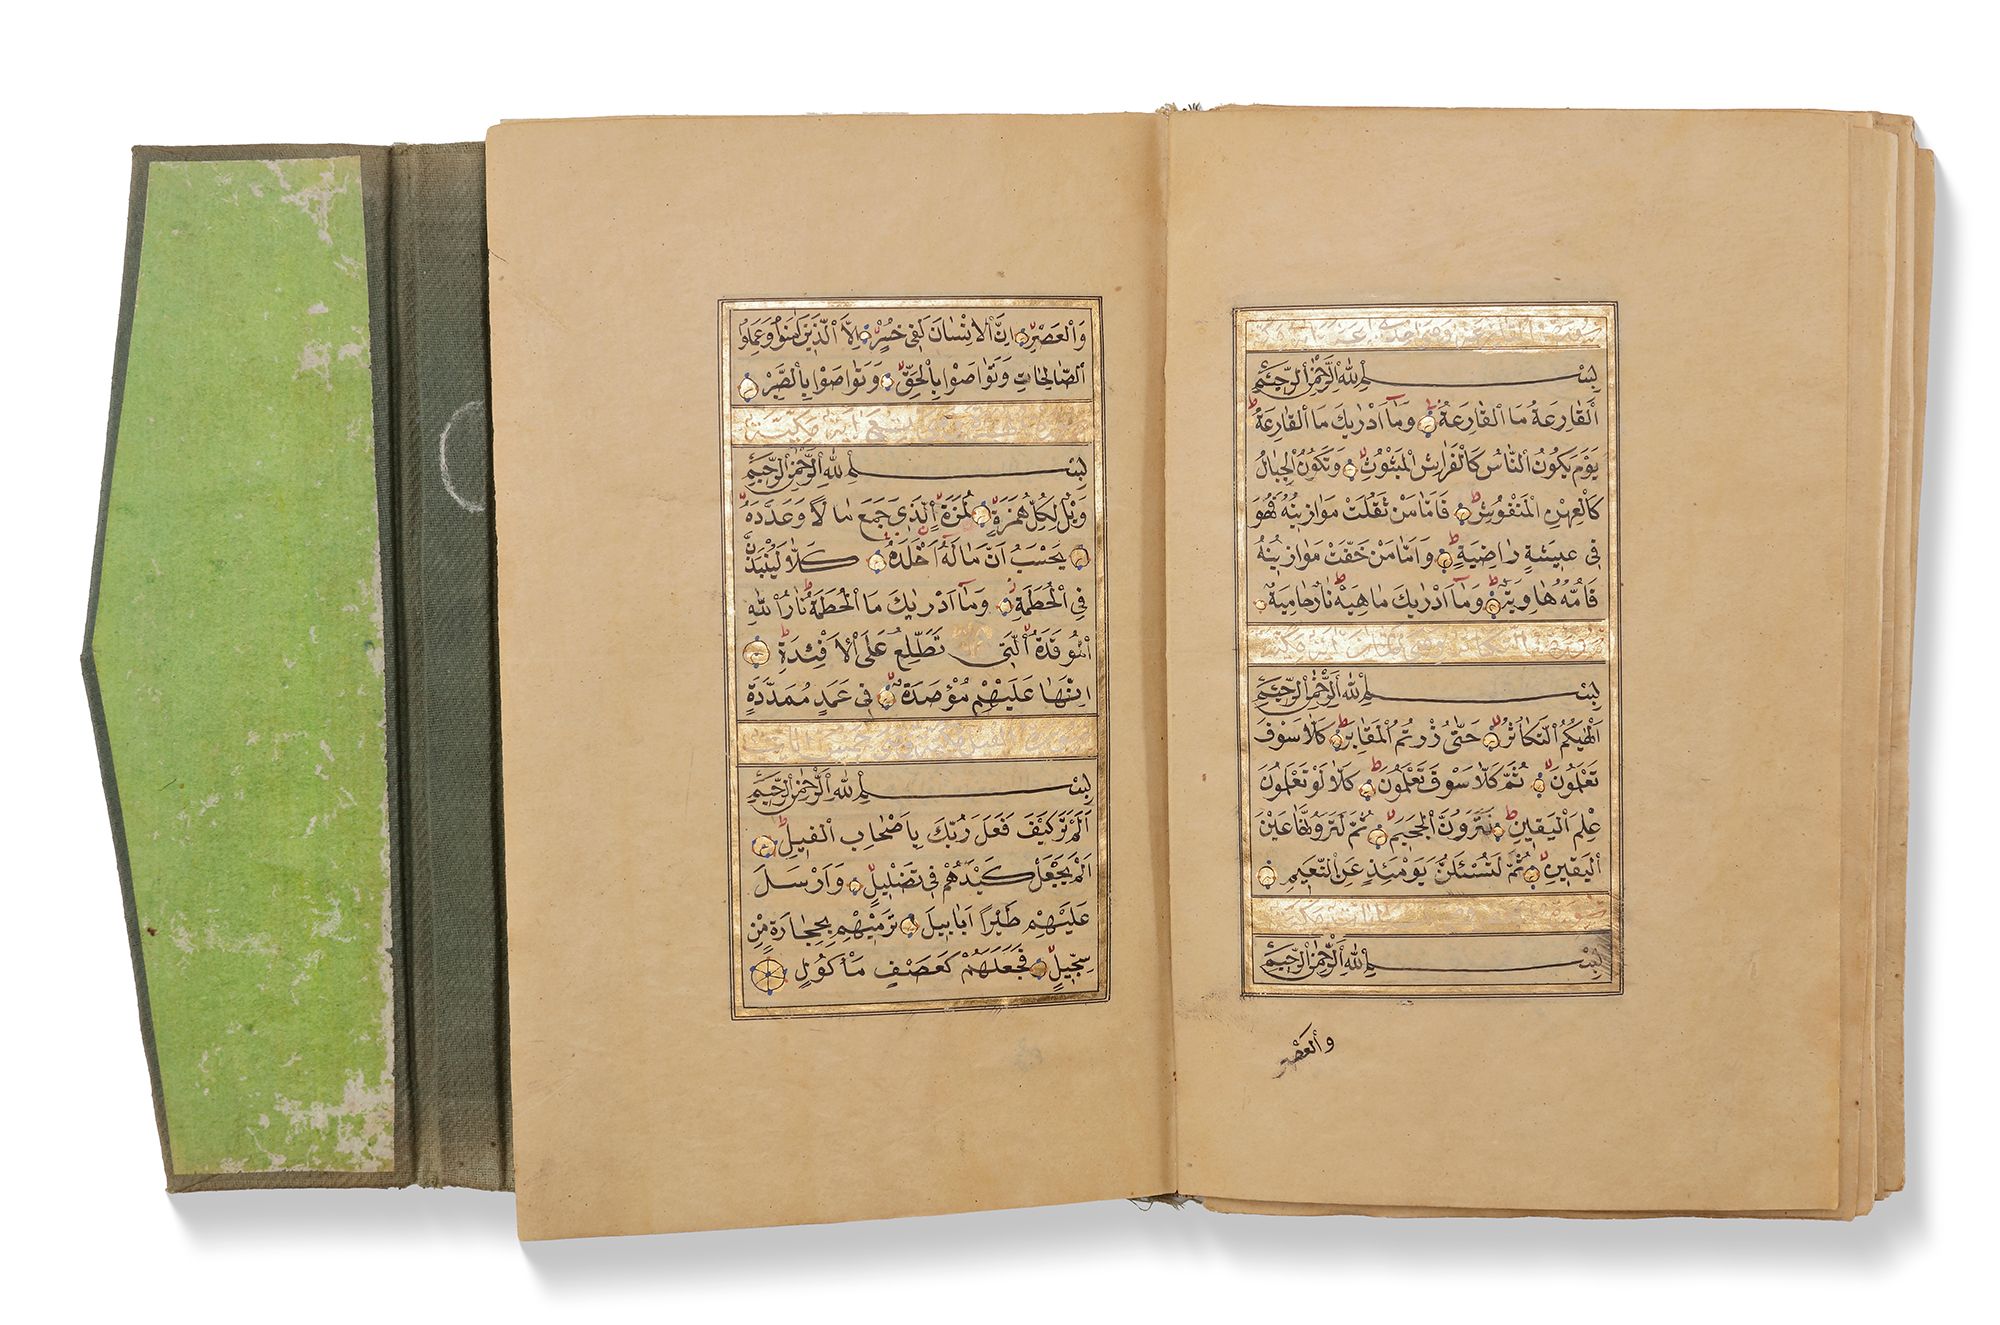 بسم الله الرحمن الرحيم
اَلْقَارِعَةُ مَا الْقَارِعَةُ وَمَآ اَدْرٰيكَ مَا الْقَارِعَةُ
يَوْمَ يَكُونُ النَّاسُ كَالْفَرَاشِ الْمَبْثُوثِ وَتَكُونُ الْجِبَالُ
كَالْعِهْنِ الْمَنْفُوشِ فَاَمَّا مَنْ ثَقُلَتْ مَوَازِينُهُ فَهُوَ
فِى عِيشَةٍ رَاضِيَةٍ وَاَمَّا مَنْ خَفَّتْ مَوَازِينُهُ
فَاُمُّهُ هَاوِيَةٌ وَمَآ اَدْرٰيكَ مَا هِيَهْ نَارٌ حَامِيَةٌ
بسم الله الرحمن الرحيم
اَلْهٰيكُمُ التَّكَاثُرُ حَتّٰى زُرْتُمُ الْمَقَابِرَ كَلَّا سَوْفَ
تَعْلَمُونَ ثُمَّ كَلَّا سَوْفَ تَعْلَمُونَ كَلَّا لَوْ تَعْلَمُونَ
عِلْمَ الْيَقِينِ لَتَرَوُنَّ الْجَحِيمَ ثُمَّ لَتَرَوُنَّهَا عَيْنَ
الْيَقِينِ ثُمَّ لَتُسْئَلُنَّ يَوْمَئِذٍ عَنِ النَّعِيمِ
بسم الله الرحمن الرحيم
والعصر
وَالْعَصْرِ اِنَّ الْاِنْسَانَ لَفِى خُسْرٍ اِلَّا الَّذِينَ اٰمَنُوا وَعَمِلُوا
الصَّالِحَاتِ وَتَوَاصَوْا بِالْحَقِّ وَتَوَاصَوْا بِالصَّبْرِ
بسم الله الرحمن الرحيم
وَيْلٌ لِكُلِّ هُمَزَةٍ لُمَزَةٍ اَلَّذِى جَمَعَ مَالًا وَعَدَّدَهُ
يَحْسَبُ اَنَّ مَالَهُ اَخْلَدَهُ كَلَّا لَيُنْبَذَنَّ
فِى الْحُطَمَةِ وَمَآ اَدْرٰيكَ مَا الْحُطَمَةُ نَارُ اللّٰهِ
الْمُوقَدَةُ اَلَّتِى تَطَّلِعُ عَلَى الْاَفْئِدَةِ
اِنَّهَا عَلَيْهِمْ مُؤْصَدَةٌ فِى عَمَدٍ مُمَدَّدَةٍ
بسم الله الرحمن الرحيم
اَلَمْ تَرَ كَيْفَ فَعَلَ رَبُّكَ بِاَصْحَابِ الْفِيلِ
اَلَمْ يَجْعَلْ كَيْدَهُمْ فِى تَضْلِيلٍ وَاَرْسَلَ
عَلَيْهِمْ طَيْرًا اَبَابِيلَ تَرْمِيْهِمْ بِحِجَارَةٍ مِنْ
سِجِّيلٍ فَجَعَلَهُمْ كَعَصْفٍ مَأْكُولٍ